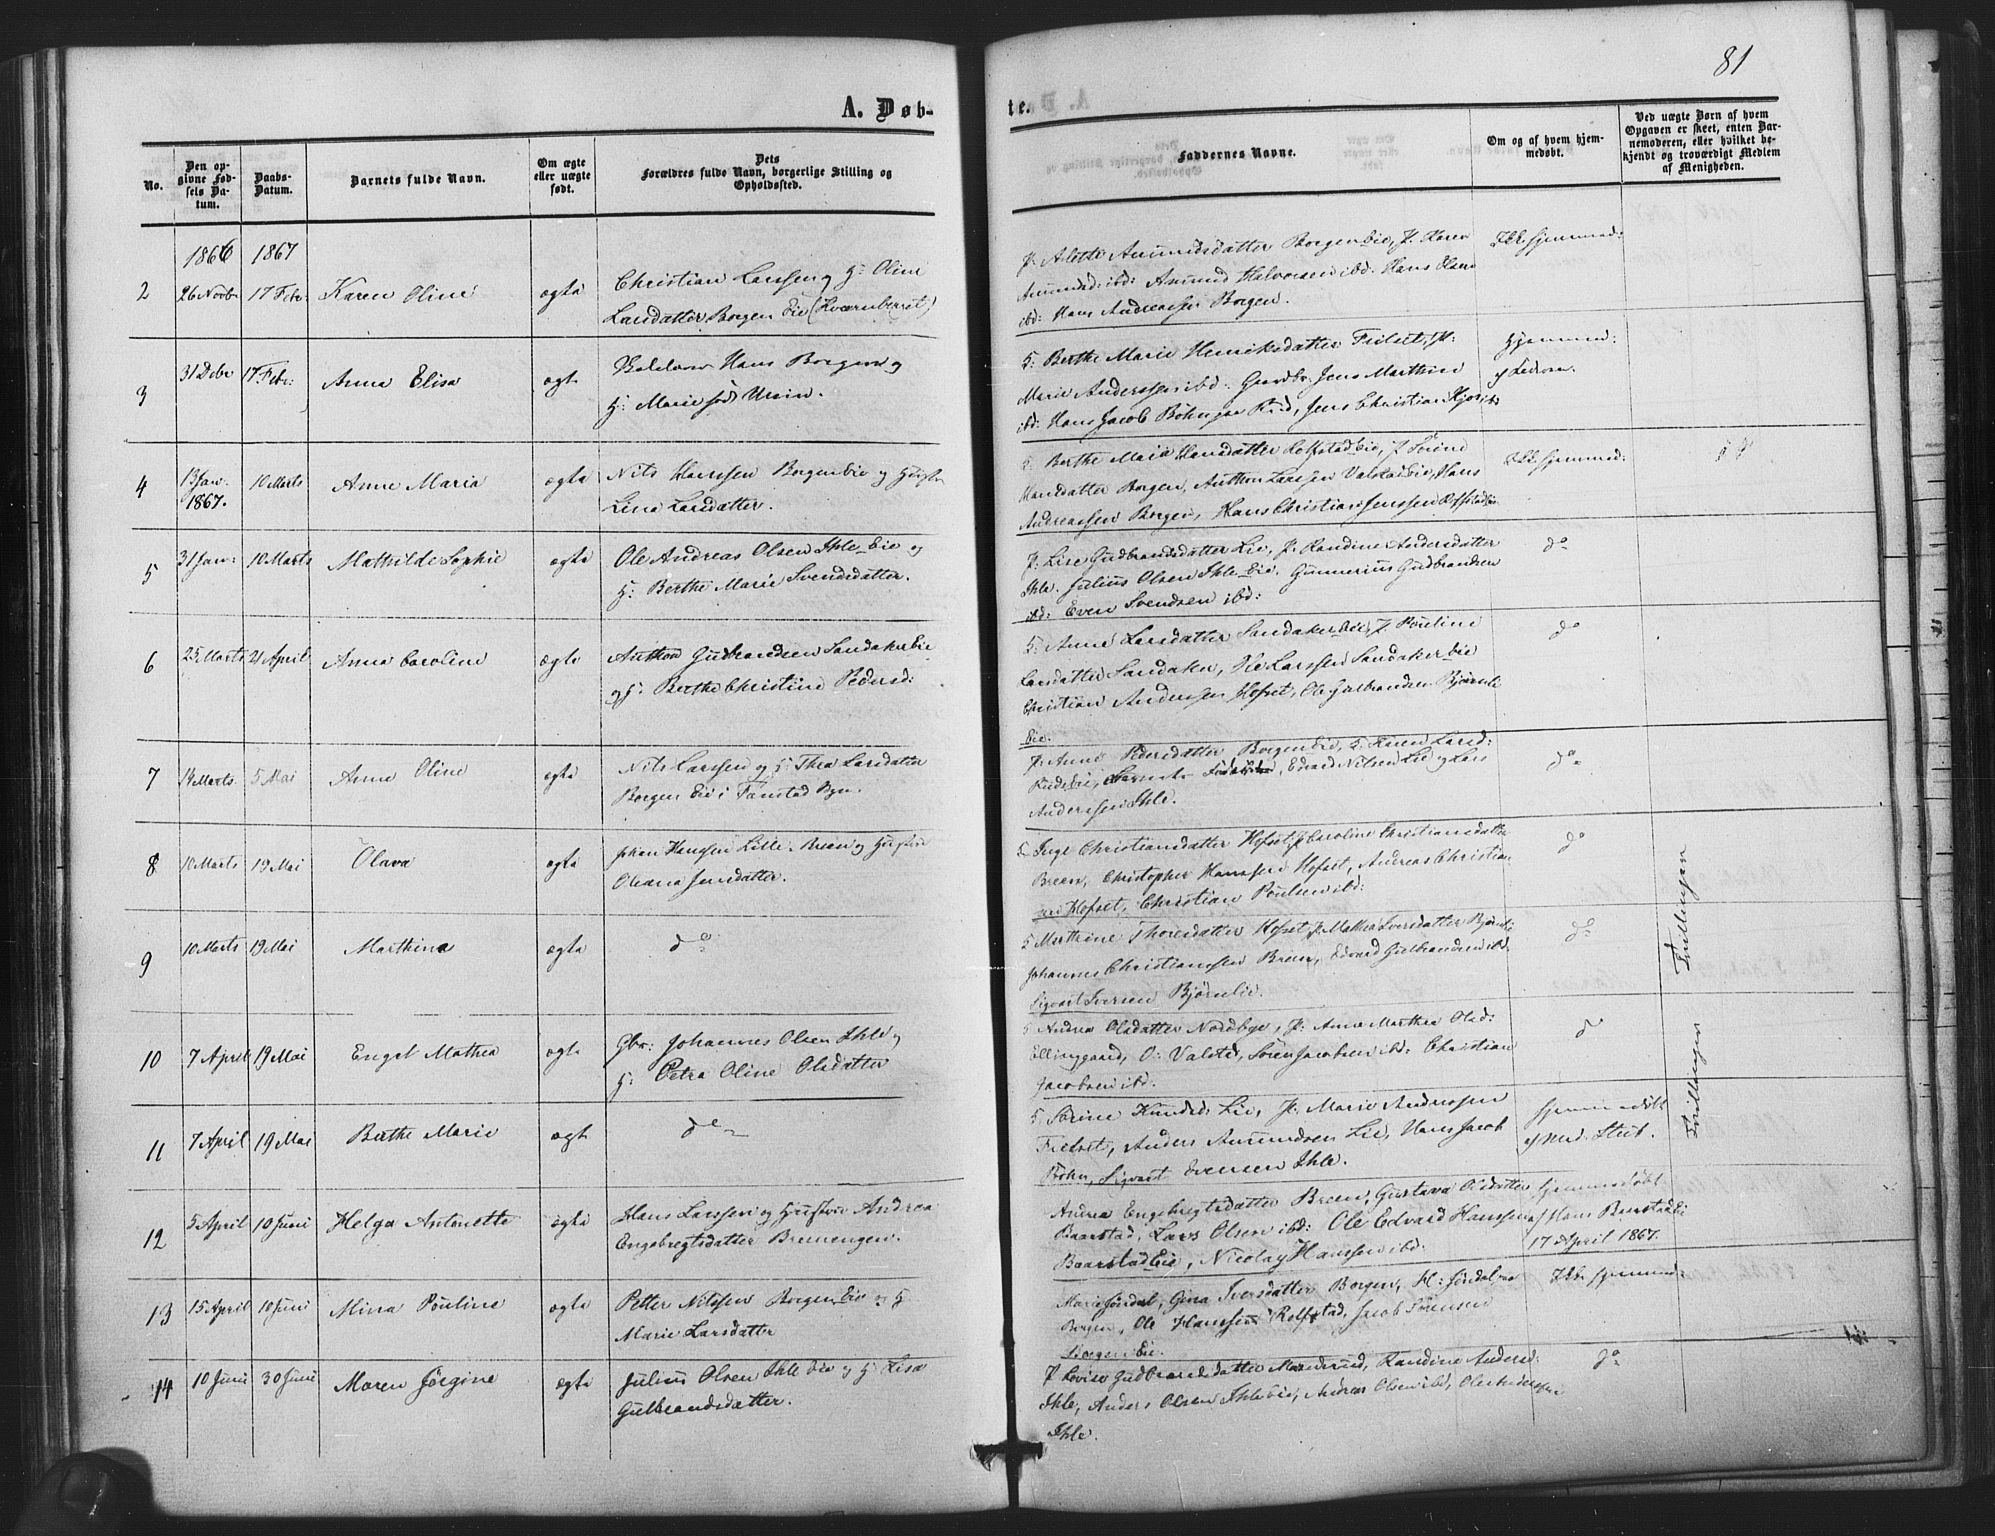 81
A. Døb-
te.
No.
Den op-
givne Fød-
sels Da-
tum.
Daabs-
Datum.
Barnets fulde Navn.
Om ægte
eller uægte
født.
Dets
Forældres fulde Navn, borgerlige Stilling og
Opholdssted.
Faddernes Navne.
Om og af hvem hjem-
medøbt.
Ved uægte Børn af hvem
Opgaven er skeet, enten Bar-
nemoderen, eller hvilket be-
kjendt og troværdigt Medlem
af Menigheden.
1866 1867
2 26 Novbr 17 Febr: Karen Oline ægte
Christian Larssen og H: Oline
Larsdatter Borgen Eie (Kværnberret)
F: Alette Amundsdatter Borgeneie, P. Karen
Amundsd: ibd: Amund Halvorsen ibd. Hans Olsen
ibd: Hans Andreassen Borgen.
Ikke hjemmed:
3 31 Debr 17 Febr: Anna Elisa ægte
Hans Borgen og
H: Marie født
G: Berthe Marie Henriksdatter Fielset,
Marie Anderssen ibd: Gaardbr: Jens Marthin
ibd: Hans Jacob Bøhn Jens Christian
Hjemmed:
4 13 Jan: 1867. 10 Marts Anne Maria ægte
Nils Hanssen Borgeneie og
Lina Larsdatter.
G: Berthe Maria Hansdatter Rolfstadeie, P Sørine
Hansdatter Borgen, Anthon Larssen Valstadeie, Hans
Andreassen Borgen, Hans Christian Jenssen Rolfstadeie
Ikke hjemmed:
5 31 Jan: 10 Marts Mathilde Sophie ægte
Ole Andreas Olsen Ihle Eie og
H: Berthe Marie Svendsdatter.
P. Lise Gudbrandsdatter Lie, P. Randine Andersdatter
Ihle. Julius Olsen Ihle Eie. Gunnerius Gudbrandsen
ibd: Even Svendsen ibd:
do
6 25 Marts 21 April Anna Caroline ægte
Anthon Gudbrandsen Sandakereie
og H: Berthe Christine Pedersd:
G: Anne Larsdatter Sandakereie, P Pouline
Larsdatter Sandaker, Ole Larssen Sandakereie
Christian Anderssen Hofset, Ole Gulbrandsen Bjørnli
Eie.
do
7 14 Marts 5 Mai Anne Oline ægte
Nils Larssen og H: Thea Larsdatter
Borgen Eie i Fanstad Byn.
P: Anne Pedersdatter Borgen Eie, G: Karen Larsd:
Rudseie, Edvard Nilsen Lie og Lars
Anderssen Ihle.
do
8 10 Marts 19 Mai Olava ægte
Johan Hanssen Lille-Breen og Hustrue
Oleana Jensdatter.
G Inge Christiansdatter Hofset, P Caroline Christiansdatter
Breen, Christopher Hanssen Hofset, Andreas Christian
sen Hofset, Christian Poulsen ibd:
do
Tvillinger
9 10 Marts 19 Mai Marthina ægte
do
G Marthine Thoresdatter Hofset P. Mathea Iversdatter Bjørnli
Johannes Christianssen Breen, Edvard Gulbrandsen ibd.
Sigvart Iversen Bjørnlie.
do
10 7 April 19 Mai Engel Mathea ægte
Gbr: Johannes Olsen Ihle og
H: Petra Oline Olsdatter
G Andrea Olsdatter Nordbye, P: Anne Marthea Olsd:
Ellinggaard, O: Valsted, Søren Jacobsen ibd: Christian
Jacobsen ibd.
do
Tvillinger
11 7 April 19 Mai Berthe Marie ægte
do
G Sørine Knudsd: Lie, P. Marie Anderssen
Fielset, Anders Amundsen Lie, Hans Jacob
Bøhn, Sigvart Evensen Ihle.
hjemmedøbt
af Stub.
12 5 April 10 Juni Helga Antonette ægte
Hans Larssen og Hustrue Andrea
Engebregtsdatter Bremengen.
Andrea Engebregtsdatter Breen, Gustava Olsdatter
Baarstad, Lars Olsen ibd: Ole Edvard Hanssen
Baarstad Eie, Nicolay Hanssen ibd.
hjemmedøbt
af Hans Baarstadei
17 April 1867.
13 15 April 10 Juni Mina Pouline ægte
Petter Nilssen Borgen Eie og H
Marie Larsdatter
Marie Jøndal, Gina Iversdatter Borgen,
Borgen, Ole Hanssen Rolfstad, Jacob Sørensen
Borgen Eie.
Ikke hjemmed:
14 10 Juni 30 Juni Maren Jørgine ægte
Julius Olsen Ihle Eie og H: Lisa
Gulbrandsdatter.
P Lovise Gudbrandsdatter Randine Andersd:
Ihle, Anders Olsen Ihle Eie, Andreas Olsen ibd, Ole Anderssen
Ihle.
do